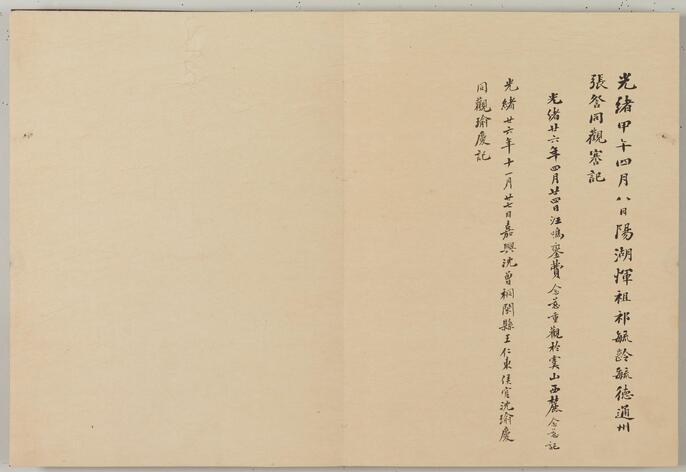 光緒甲午四月八日陽湖惲祖祁毓齡毓德通州
張詧同觀詧記
光緒廿六年四月廿四日汪鳴鑾費念慈重觀於虞山西麓念慈記
光緒廿六年十一月廿七日嘉興沈曾桐閩縣王仁東侯官沈瑜慶
同觀瑜慶記